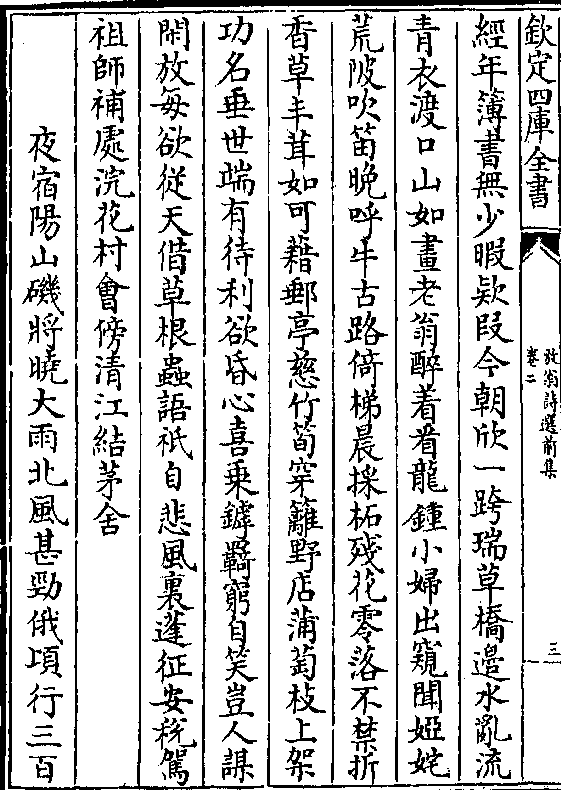 欽定四庫全書
放翁詩選前集
卷二
三
經年簿書無少暇款段今朝欣一跨瑞草橋邉水亂流
青衣渡口山如畫老翁醉着看龍鍾小婦出窺聞婭姹
荒陂吹笛晚呼牛古路倚梯晨採柘殘花零落不禁折
香草丰茸如可藉郵亭慈竹筍穿籬野店蒲萄枝上架
功名垂世端有待利欲昏心喜乗罅羇窮自笑豈人謀
閑放每欲從天借草根蟲語祇自悲風裏蓬征安稅駕
祖師補處浣花村會傍清江結茅舍
夜宿陽山磯將曉大雨北風甚勁俄頃行三百